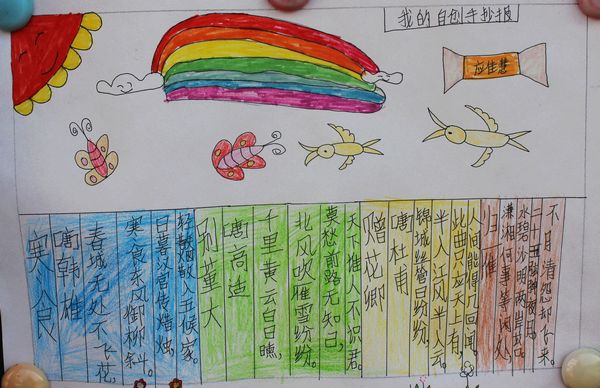 我的自创手抄报
应佳慧
寒食
唐韩雄
春城无处不飞花,
寒食东风御柳斜.
日暮汉宫传蜡烛,
轻烟散入五侯家.
别董大
唐高适
千里黄云白日曛,
北风吹雁雪纷纷.
莫愁前路无知己,
天下谁人不识君.
赠花卿
唐杜甫
锦城丝管日纷纷,
半入江风半入云.
此曲只应天上有,
人间能得几回闻.
归雁
潇湘何事等闲
水碧沙明两岸苔.
二十五弦弹夜月.
不清怨却飞来.